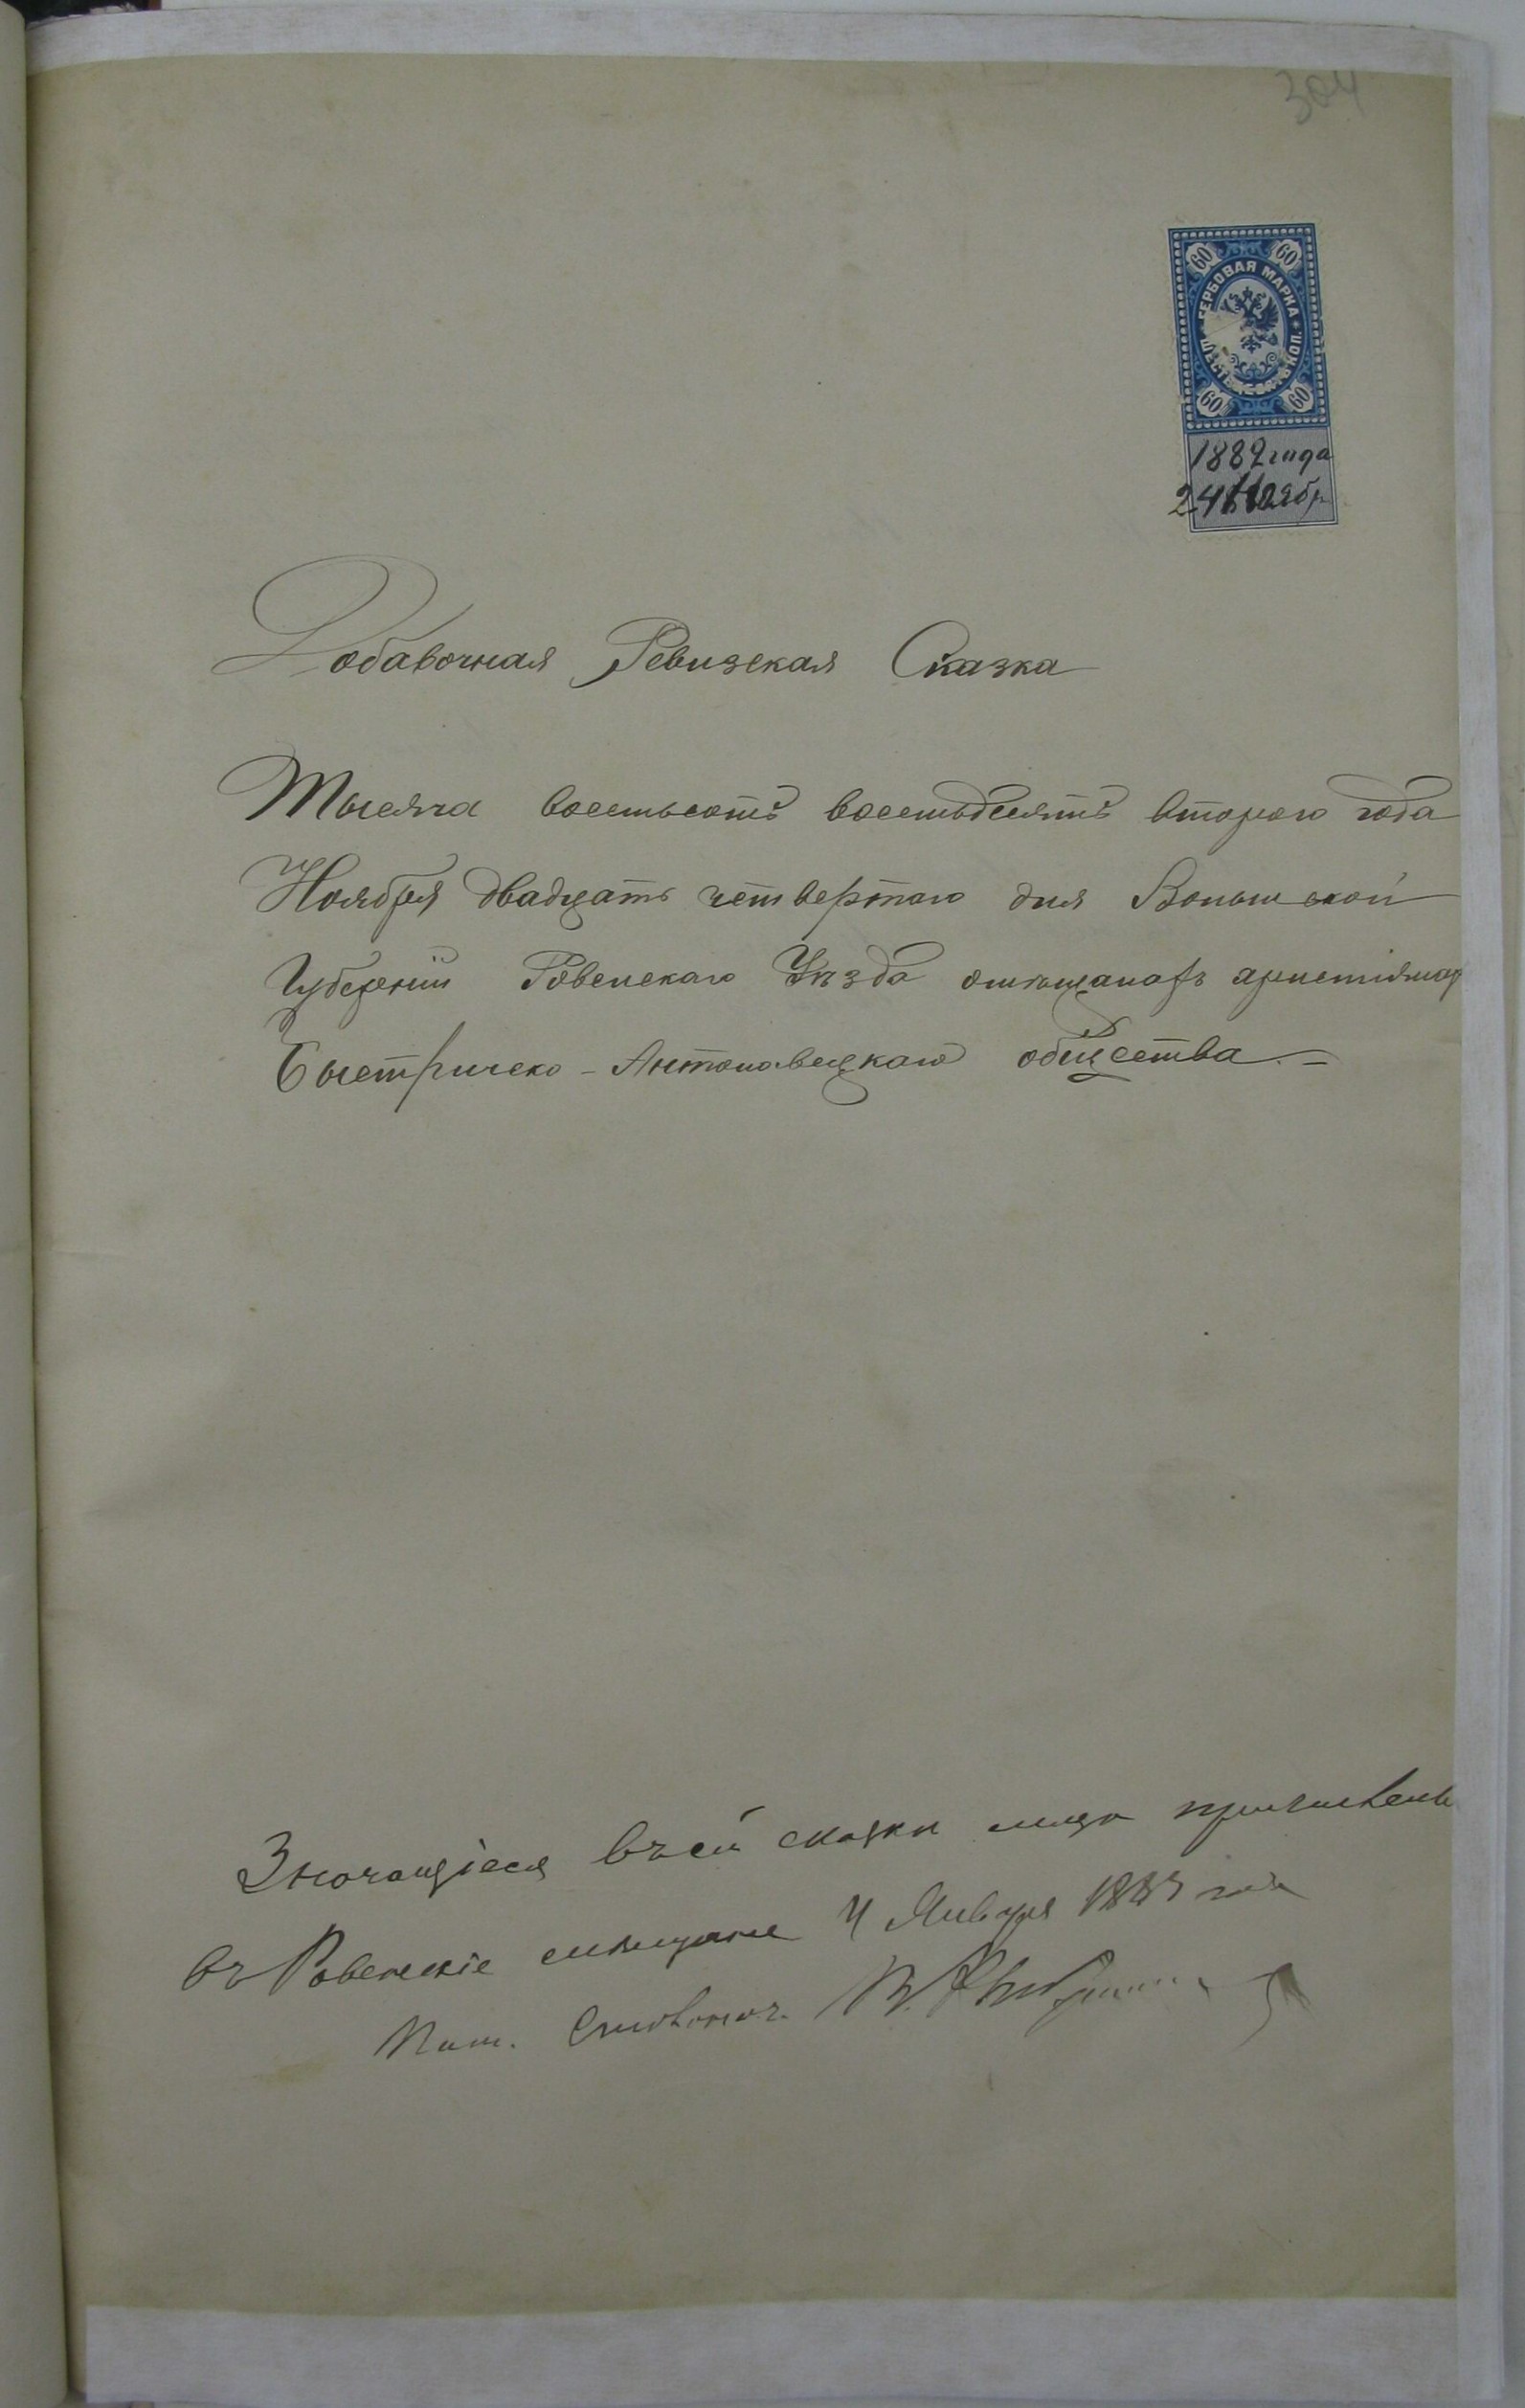 304
60 60
ГЕРБОВАЯ МАРКА
ШЕСТЬДЕСЯТЪ КОП.
60 60
1882 года
24 Ноябр
Добавочная Ревизская Сказка
Тысяча восемьсотъ восемьдесятъ второго года
Ноября двадцать четвертаго дня Волынской
Губерніи Ровенскаго Уѣзда о мѣщанахъ христіянах
Быстрическо-Антоновецкаго общества. =
Значащіеся въ сей сказки лица причислены
въ Ровенские мѣщане 4 Января 1883 года
Пом. Столонач.